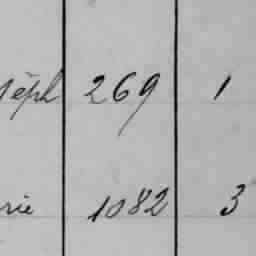 séph 269 1
rie 1082 3